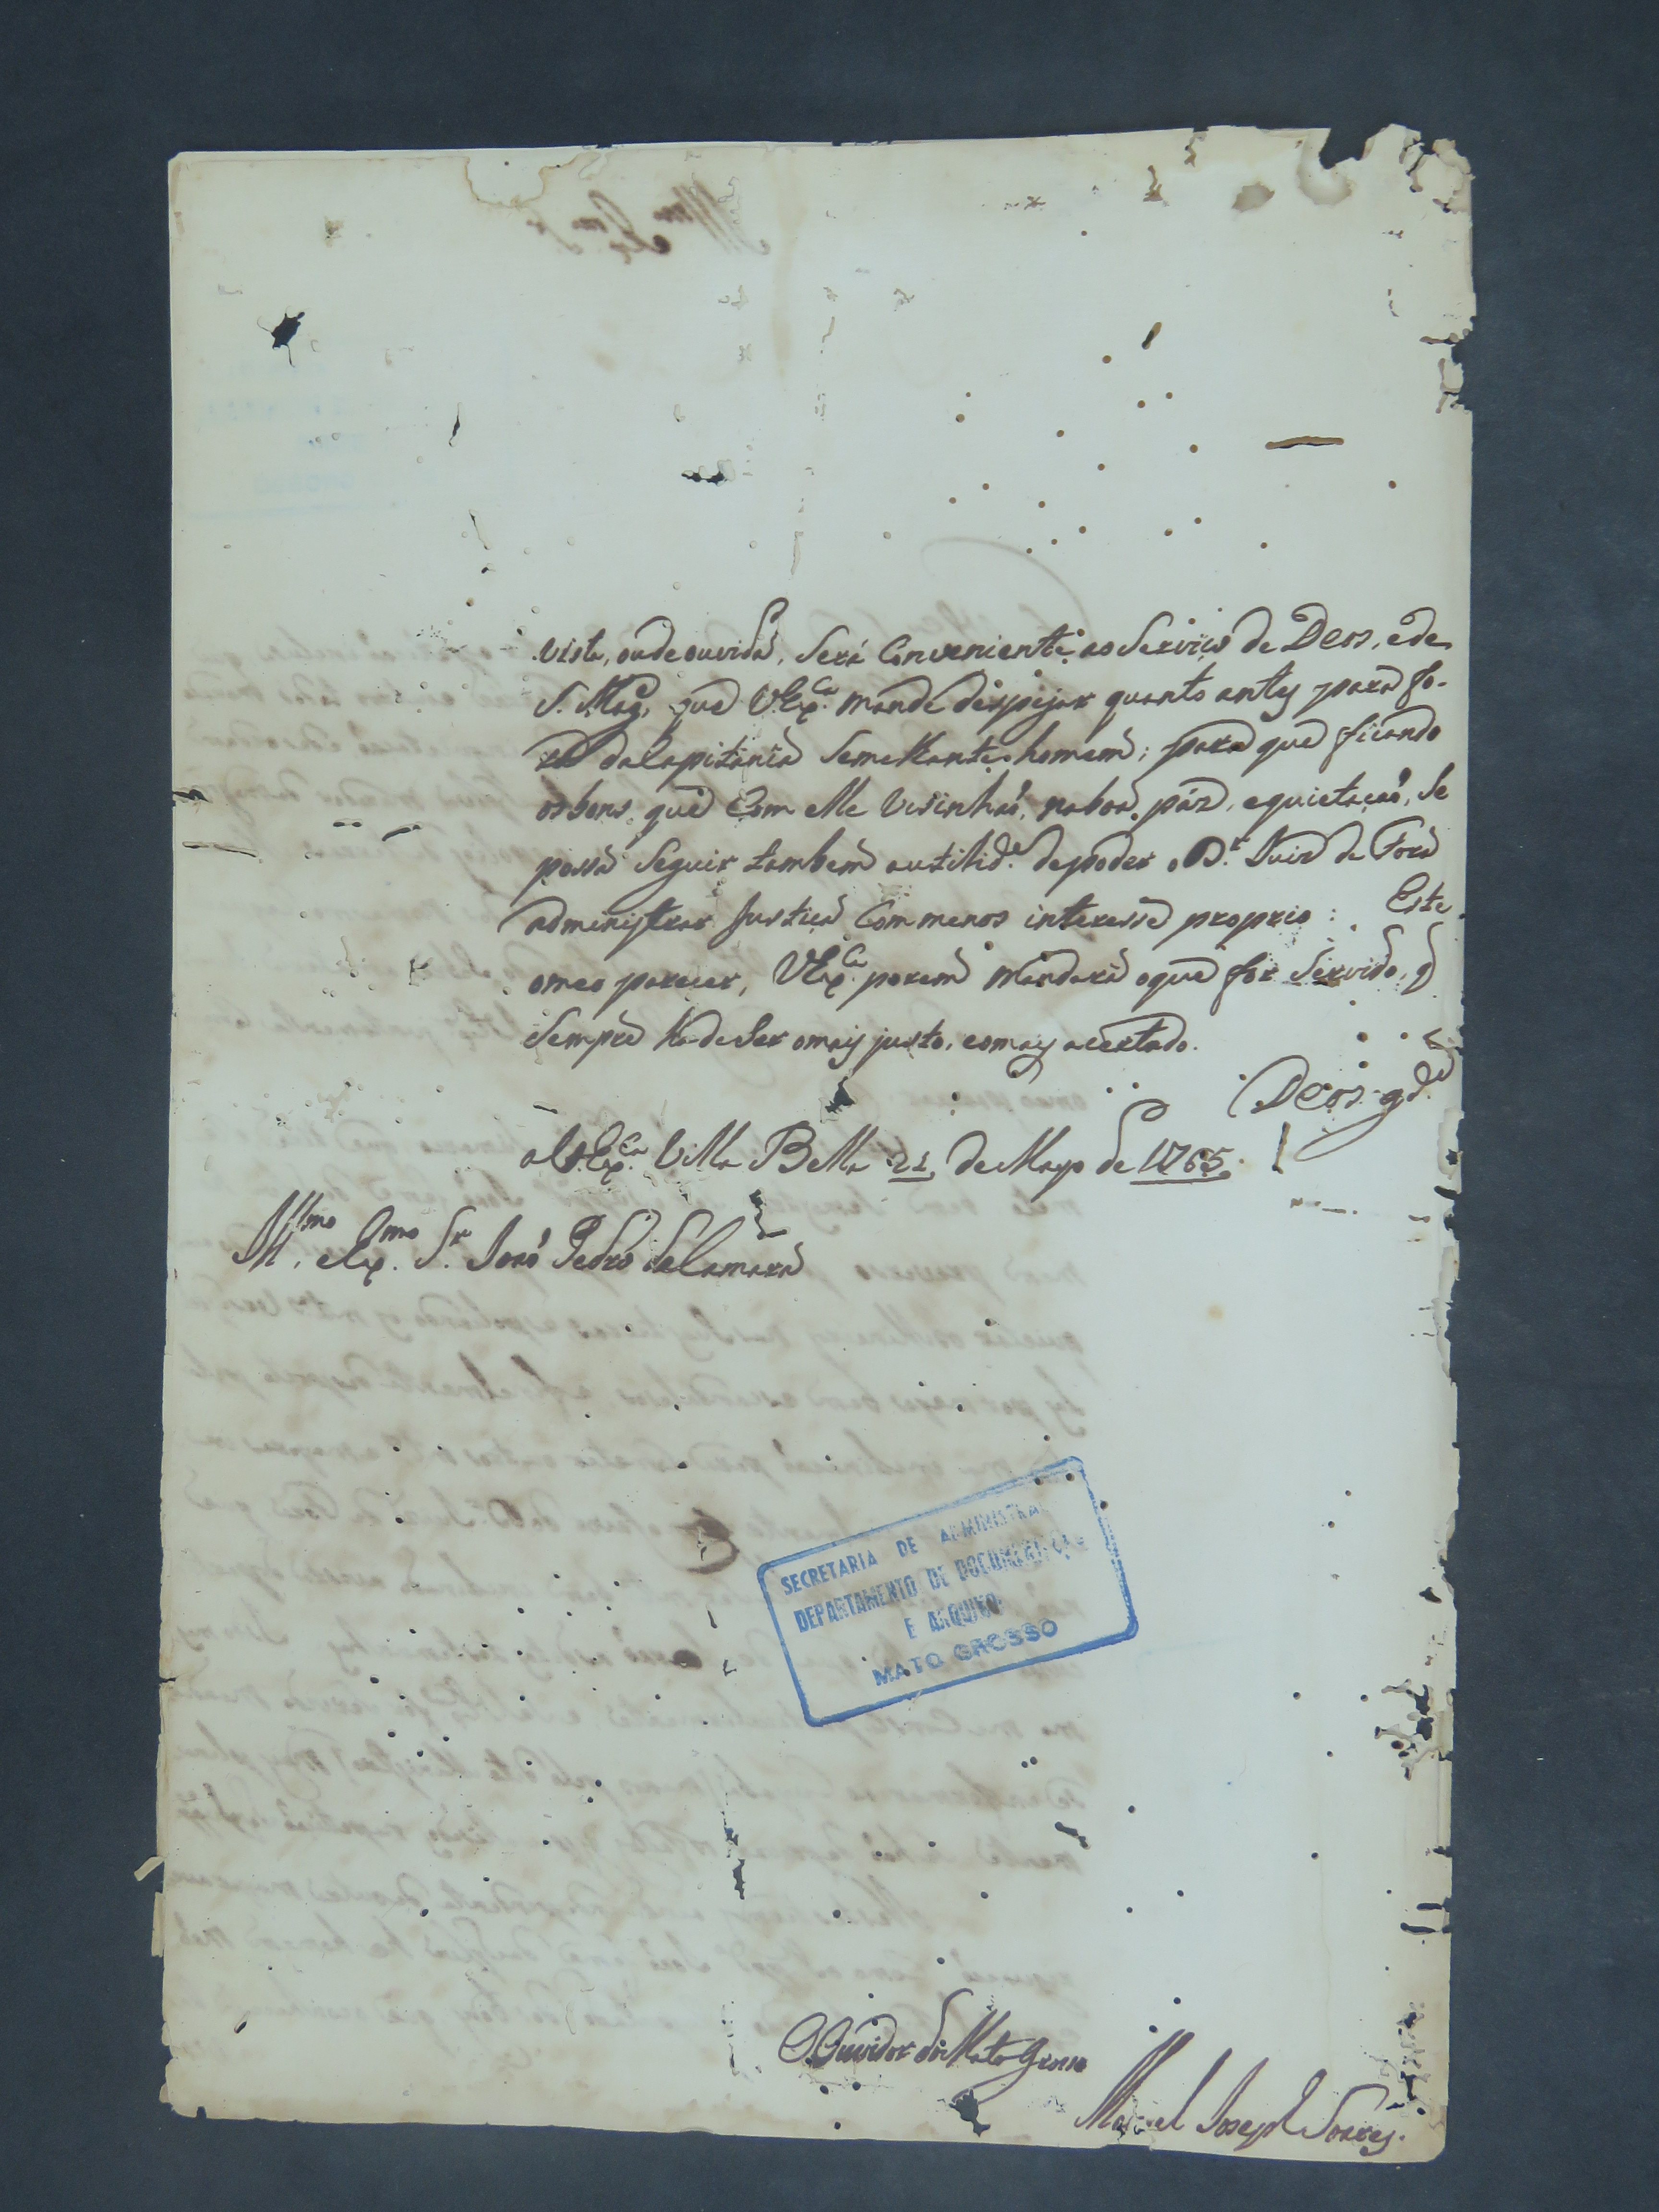 vista, ou de ouvida, Será Conveniente ao Serviço de Deos, e de
S. Mag.e, que V. Ex.ca mande despejar quanto antes para fo-
ra da Capitania Semelhante homem; para que ficando
os bons, que Com elle Visinhaõ, na boa páz, e quietaçaõ, Se
possa Seguir tambem a utilid.e de poder o D.r Juiz de Fora
administrar Justiça Com menos interesse proprio: Este
o meo parecer, V Ex.ca porem mandará o que for Servido, q
Sempre ha de Ser o mais justo, e o mais acertado.
Deos g.de
a V. Ex.ca Villa Bella 21 de Mayo de 1765.
Ill.mo e Ex.mo S.r Joaõ Pedro da Camara
SECRETARIA DE ADMINISTRA
DEPARTAMENTO DE DOCUMENTAÇÃO
E ARQUIVO
MATO GROSSO
O Ouvidor do Mato Grosso
Manoel Joseph Soares.